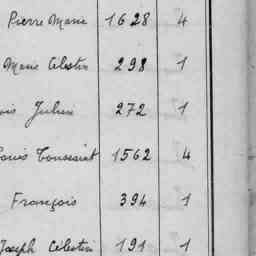 Pierre Marie 1628 4
Marie Célestin 298 1
Julien 272 1
Louis Toussaint 1562 4
François 394 1
Joseph Célestin 191 1